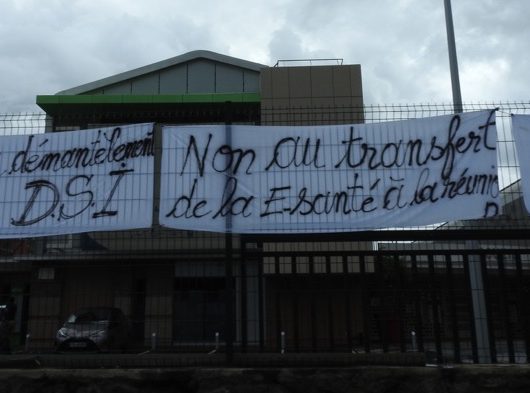 démantèlement
D.S.I
Non au transfert
de la E-santé à la réunion